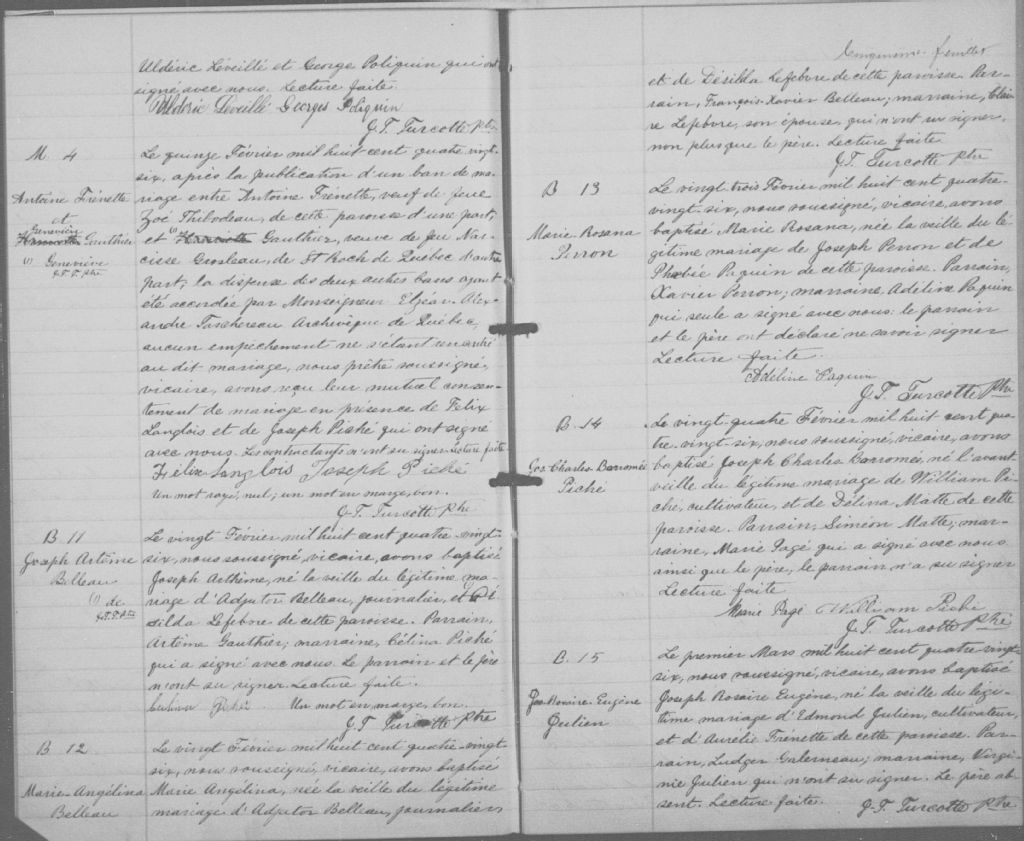 Uldéric Léveillé et George Poliquin qui ont
signé avec nous. Lecture faite.
Uldéric Léveillé Georges Poliquin
J.T. Turcotte Ptre
M. 4
Antoine Frénette
et
Geneviève
Henriette Gauthier
(1) Geneviève
J.T.T. Ptre
Le quinze Février mil huit cent quatre-vingt-
six, après la publication d'un ban de ma-
riage entre Antoine Frénette, veuf de feue
Zoé Thibodeau, de cette paroisse d'une part,
et (1) Henriette Gauthier, veuve de feu Nar-
cisse Grosleau, de St Roch de Québec d'autre
part; la dispense des deux autres bans ayant
été accordée par Monseigneur Elzear-Alex-
andre Taschereau Archevêque de Québec,
aucun empêchement ne s'étant rencontré
au dit mariage, nous prêtre soussigné,
vicaire, avons reçu leur mutuel consen-
tement de mariage en présence de Felix
Langlois et de Joseph Piché qui ont signé
avec nous. Les contractants n'ont su signer. Lecture faite.
Félix Langlois Joseph Piché
Un mot rayé, nul; un mot en marge, bon.
J.T. Turcotte Ptre
B. 11
Joseph Artème
Belleau
(1) de
J.T.T. Ptre
Le vingt Février mil huit cent quatre-vingt-
six, nous soussigné, vicaire, avons baptisé
Joseph Arthème, né la veille du légitime ma-
riage d'Adjutor Belleau, journalier, et (1) Dé-
silda Lefebvre de cette paroisse. Parrain,
Artème Gauthier; marraine, Célina Piché
qui a signé avec nous. Le parrain et le père
n'ont su signer. Lecture faite.
Celina Piché Un mot en marge, bon.
J.T. Turcotte Ptre
B 12
Marie-Angélina
Belleau
Le vingt Février mil huit cent quatre-vingt-
six, nous soussigné, vicaire, avons baptisé
Marie Angélina, née la veille du légitime
mariage d'Adjutor Belleau, journalier,
Cinquième feuillet
et de Désilda Lefebvre de cette paroisse. Par-
rain, François-Xavier Belleau; marraine, Clai-
re Lefebvre, son épouse, qui n'ont su signer,
non plus que le père. Lecture faite
J.T. Turcotte Ptre
B 13
Marie-Rosana
Perron
Le vingt trois Février mil huit cent quatre-
vingt-six, nous soussigné, vicaire, avons
baptisé Marie Rosana, née la veille du lé-
gitime mariage de Joseph Perron et de
Phœbie Paquin de cette paroisse. Parrain,
Xavier Perron; marraine, Adéline Paquin
qui seule a signé avec nous: le parrain
et le père ont déclaré ne savoir signer
Lecture faite.
Adéline Paquin
J.T. Turcotte Ptre
B. 14
Jos Charles Barromée
Piché
Le vingt-quatre Février mil huit cent qua-
tre-vingt-six, nous soussigné, vicaire, avons
baptisé Joseph Charles Barromée, né l'avant
veille du légitime mariage de William Pi-
ché, cultivateur, et de Délina Matte de cette
paroisse. Parrain, Siméon Matte; mar-
raine, Marie Pagé qui a signé avec nous
ainsi que le père, le parrain n'a su signer
Lecture faite
Marie Pagé William Piché
J.T. Turcotte Ptre
B. 15
Jos Rosaire-Eugène
Julien
Le premier Mars mil huit cent quatre-vingt-
six, nous soussigné, vicaire, avons baptisé
Joseph Rosaire Eugène, né la veille du légi-
time mariage d'Edmond Julien, cultivateur,
et d'Aurélie Frénette de cette paroisse. Par-
rain, Ludger Galerneau; marraine, Virgi-
nie Julien qui n'ont su signer. Le père ab-
sent. Lecture faite.
J.T. Turcotte Ptre